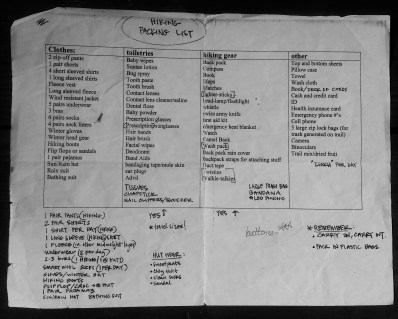 HIKING
PACKING LIST
Clothes:
2 zip-off pants
1 pair shorts
4 short sleeved shirts
1 long sleeved shirts
Fleece vest
Long sleeved fleece
Wind resistant jacket
5 pairs underwear
3 bras
6 pair socks
4 pairs sock liners
Winter gloves
Winter head gear
Hiking boots
Flip flops or sandals
1 pair pajamas
Sun/Rain hat
Rain suit
Bathing suit
toiletries
Baby wipes
Suntan lotion
Bug spray
Tooth paste
Tooth brush
Contact lenses
Contact lens cleaner/saline
Dental floss
Baby powder
Prescription glasses
Prescription sunglasses
Hair bands
Hair brush
Facial wipes
Deodorant
Band Aids
bandaging tape/mole skin
ear plugs
Advil
TISSUES
CHAPSTICK
NAIL CLIPPERS/TWEEZER
hiking gear
Back pack
Compass
Book
Maps
Matches
lighter-sticks
head-lamp/flashlight
whistle
swiss army knife
first aid kit
emergency heat blanket
Watch
Camel Back
Wash pack
Back pack rain cover
backpack straps for attaching stuff
Duct tape
Walkie-talkies
LARGE TRASH BAG
BANDANA
other
Top and bottom sheets
Pillow case
Towel
Wash cloth
Book/DECK OF CARDS
Cash and credit card
ID
Health insurance card
Emergency phone #'s
Cell phone
5 large zip lock bags (for
trash generated on trail)
Camera
Binoculars
Trail mix/dried fruit
"LUNCH" PER DAY
1 PAIR PANTS (HIKING)
2 PAIR SHORTS
1 SHIRT PER DAY (HIKING)
HIKING BOOTS
1 PAIR PAJAMAS
SUN/RAIN HAT BATHING SUIT
YES
* travel sizes!
HUT WEAR:
• Sweatpants
• Clean socks
• Sandal
YES
* REMEMBER
• CARRY IN, CARRY OUT.
• PACK IN PLASTIC BAGS